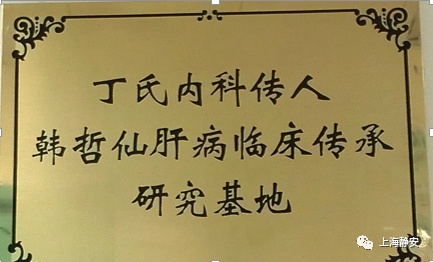 丁氏内科传人
韩哲仙肝病临床传承
研究基地
上海静安